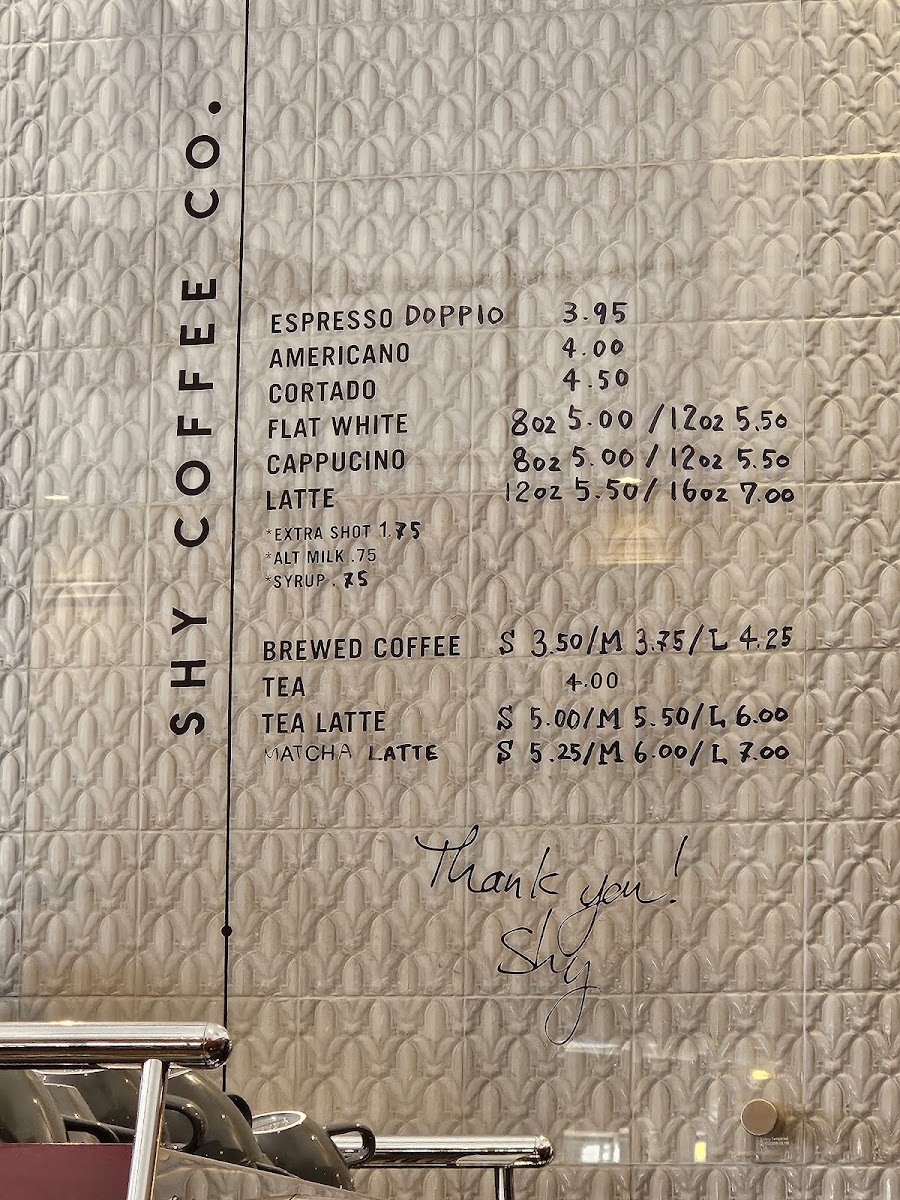 SHY COFFEE CO.
ESPRESSO DOPPIO 3.95
AMERICANO 4.00
CORTADO 4.50
FLAT WHITE 8oz 5.00 / 12oz 5.50
CAPPUCINO 8oz 5.00 / 12oz 5.50
LATTE 12oz 5.50 / 16oz 7.00
*EXTRA SHOT 1.75
*ALT MILK .75
*SYRUP .75
BREWED COFFEE S 3.50/M 3.75/L 4.25
TEA 4.00
TEA LATTE S 5.00/M 5.50/L 6.00
MATCHA LATTE S 5.25/M 6.00/L 7.00
Thank you!
Shy